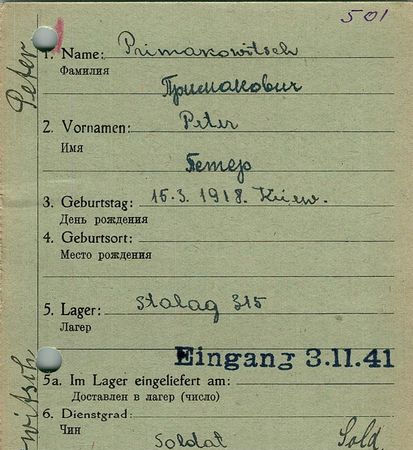 501
1. Name: Primakowitsch
Фамилия
Примакович
2. Vornamen: Peter
Имя
Петер
3. Geburtstag: 15.3.1918. Kiew.
День рождения
4. Geburtsort:
Место рождения
5. Lager: Stalag 315
Лагер
Eingang 3.11.41
5a. Im Lager eingeliefert am:
Доставлен в лагер (число)
6. Dienstgrad: Sold.
Чин
Soldat
Peter
witsch